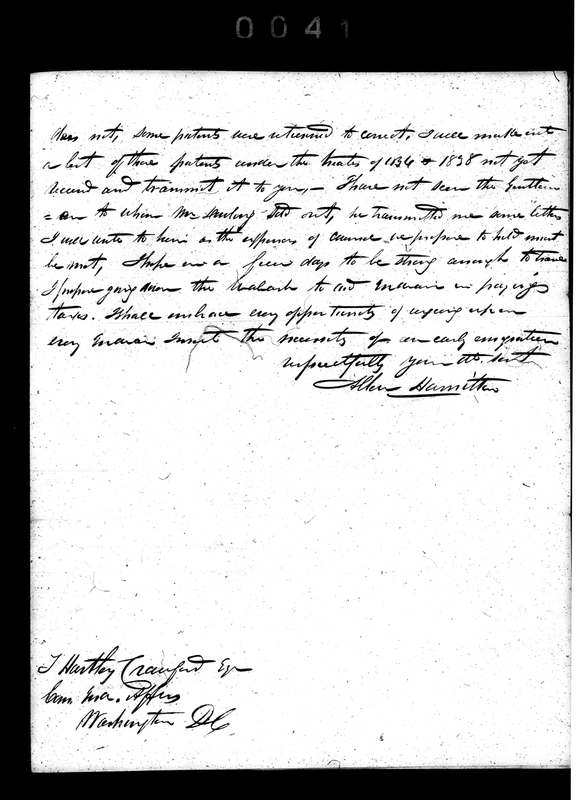 0041
does not, some patents are returned to correct. I will make out
a list of those patents under the treates of 1834 & 1838 not yet
received and transmit it to you, – I have not seen the Gentlem
= an to whom Mr sold out, he transmitted me some letters
I will write to him as the expenses of we propose to hold must
be met, I hope in a few days to be strong enough to travel
I propose going down the Wabash to aid in paying
taxes. I shall embrace every opportunity of urging upon
every the necessity of an early emigration
respectfully your obt. Servt
Allen Hamilton
T Hartley Crawford Esqr
Com. Ind. Affrs
Washington DC